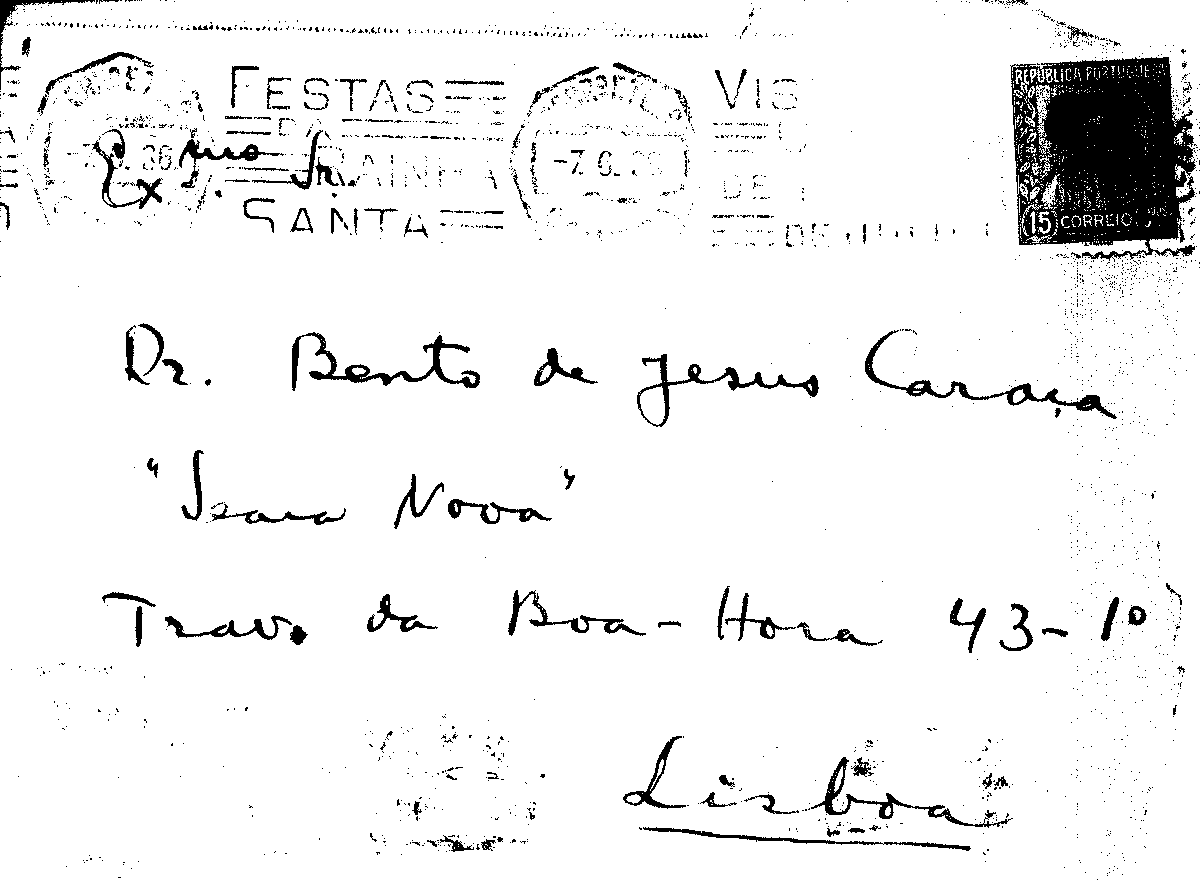 FESTAS VIS
DA
-7. 6. 36 RAINHA -7. 6. 36
DE
SANTA
REPÚBLICA PORTUGUESA
15 CORREIO
Ex.mo Sr.
Dr. Bento de Jesus Caraça
"Seara Nova"
Trav. da Boa-Hora 43-1º
Lisboa